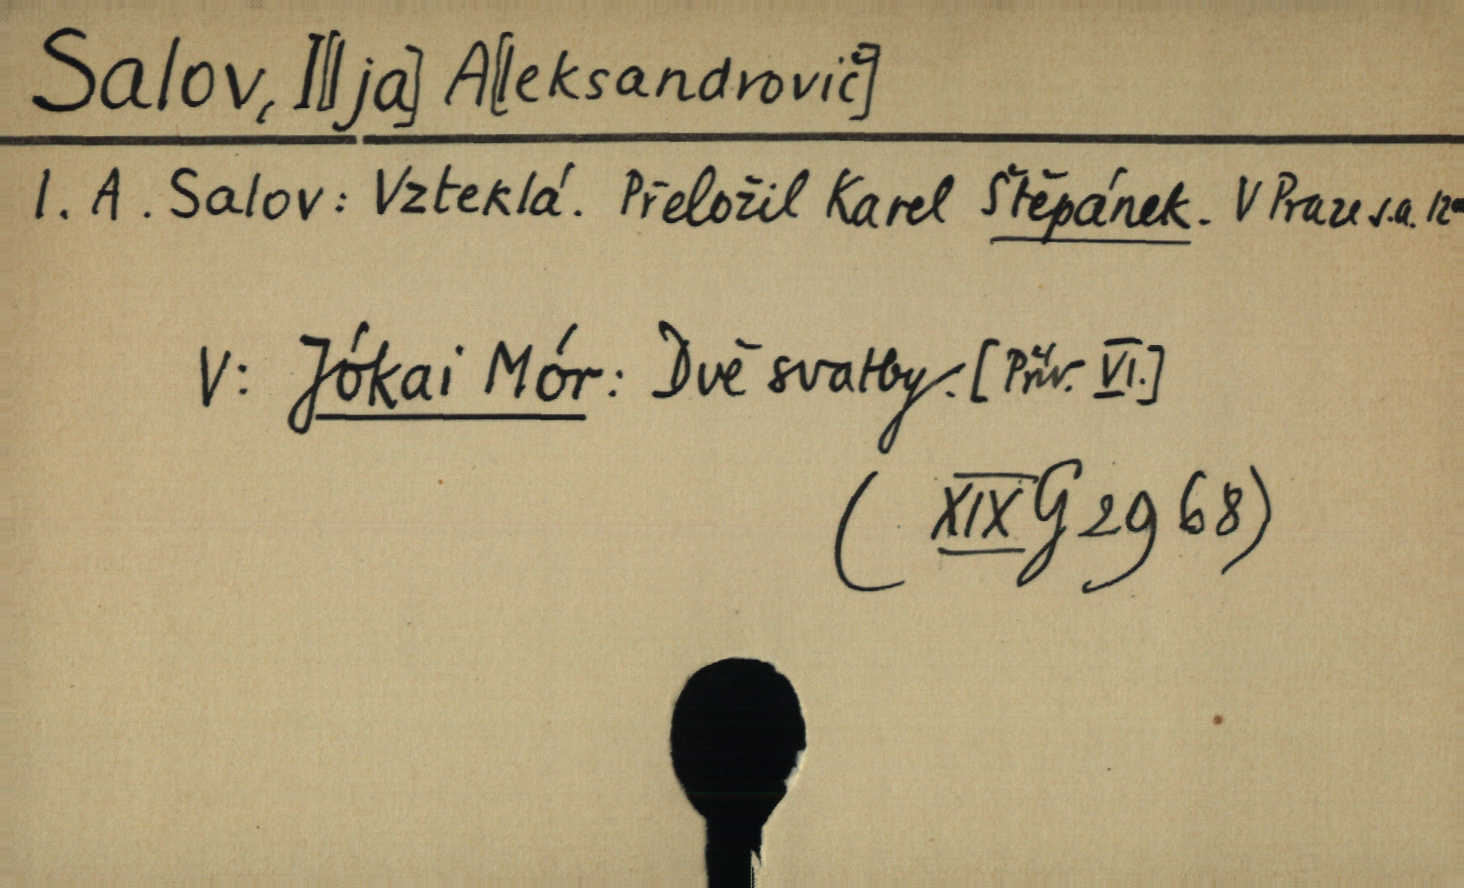 Salov, I[lja] A[leksandrovič]
I. A. Salov: Vzteklá. Přeložil Karel Štěpánek. V Praze s.a. 12°
V: Jókai Mór: Dvě svatby. [Přív. VI.]
(XIX G 2968)